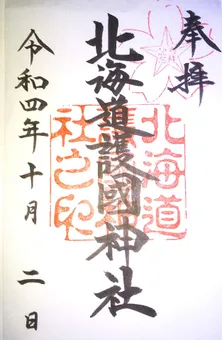 奉拝
北海道護國神社
北海道護國神社之印
令和四年十月二日